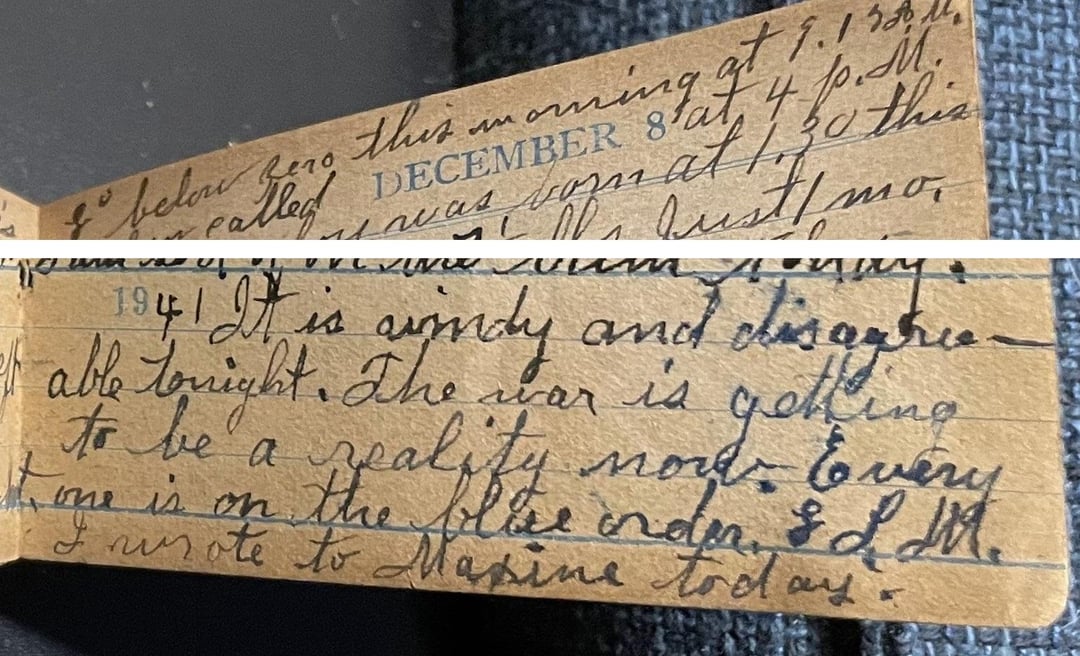 8° below zero this morning at 9.13 A.M.
DECEMBER 8 at 4 p.M.
called
was born at 1.30 this
Just 1 mo.
1941 It is windy and disagree-
able tonight. The war is getting
to be a reality now. Every
one is on the blue order. E L M.
I wrote to Maxine today.